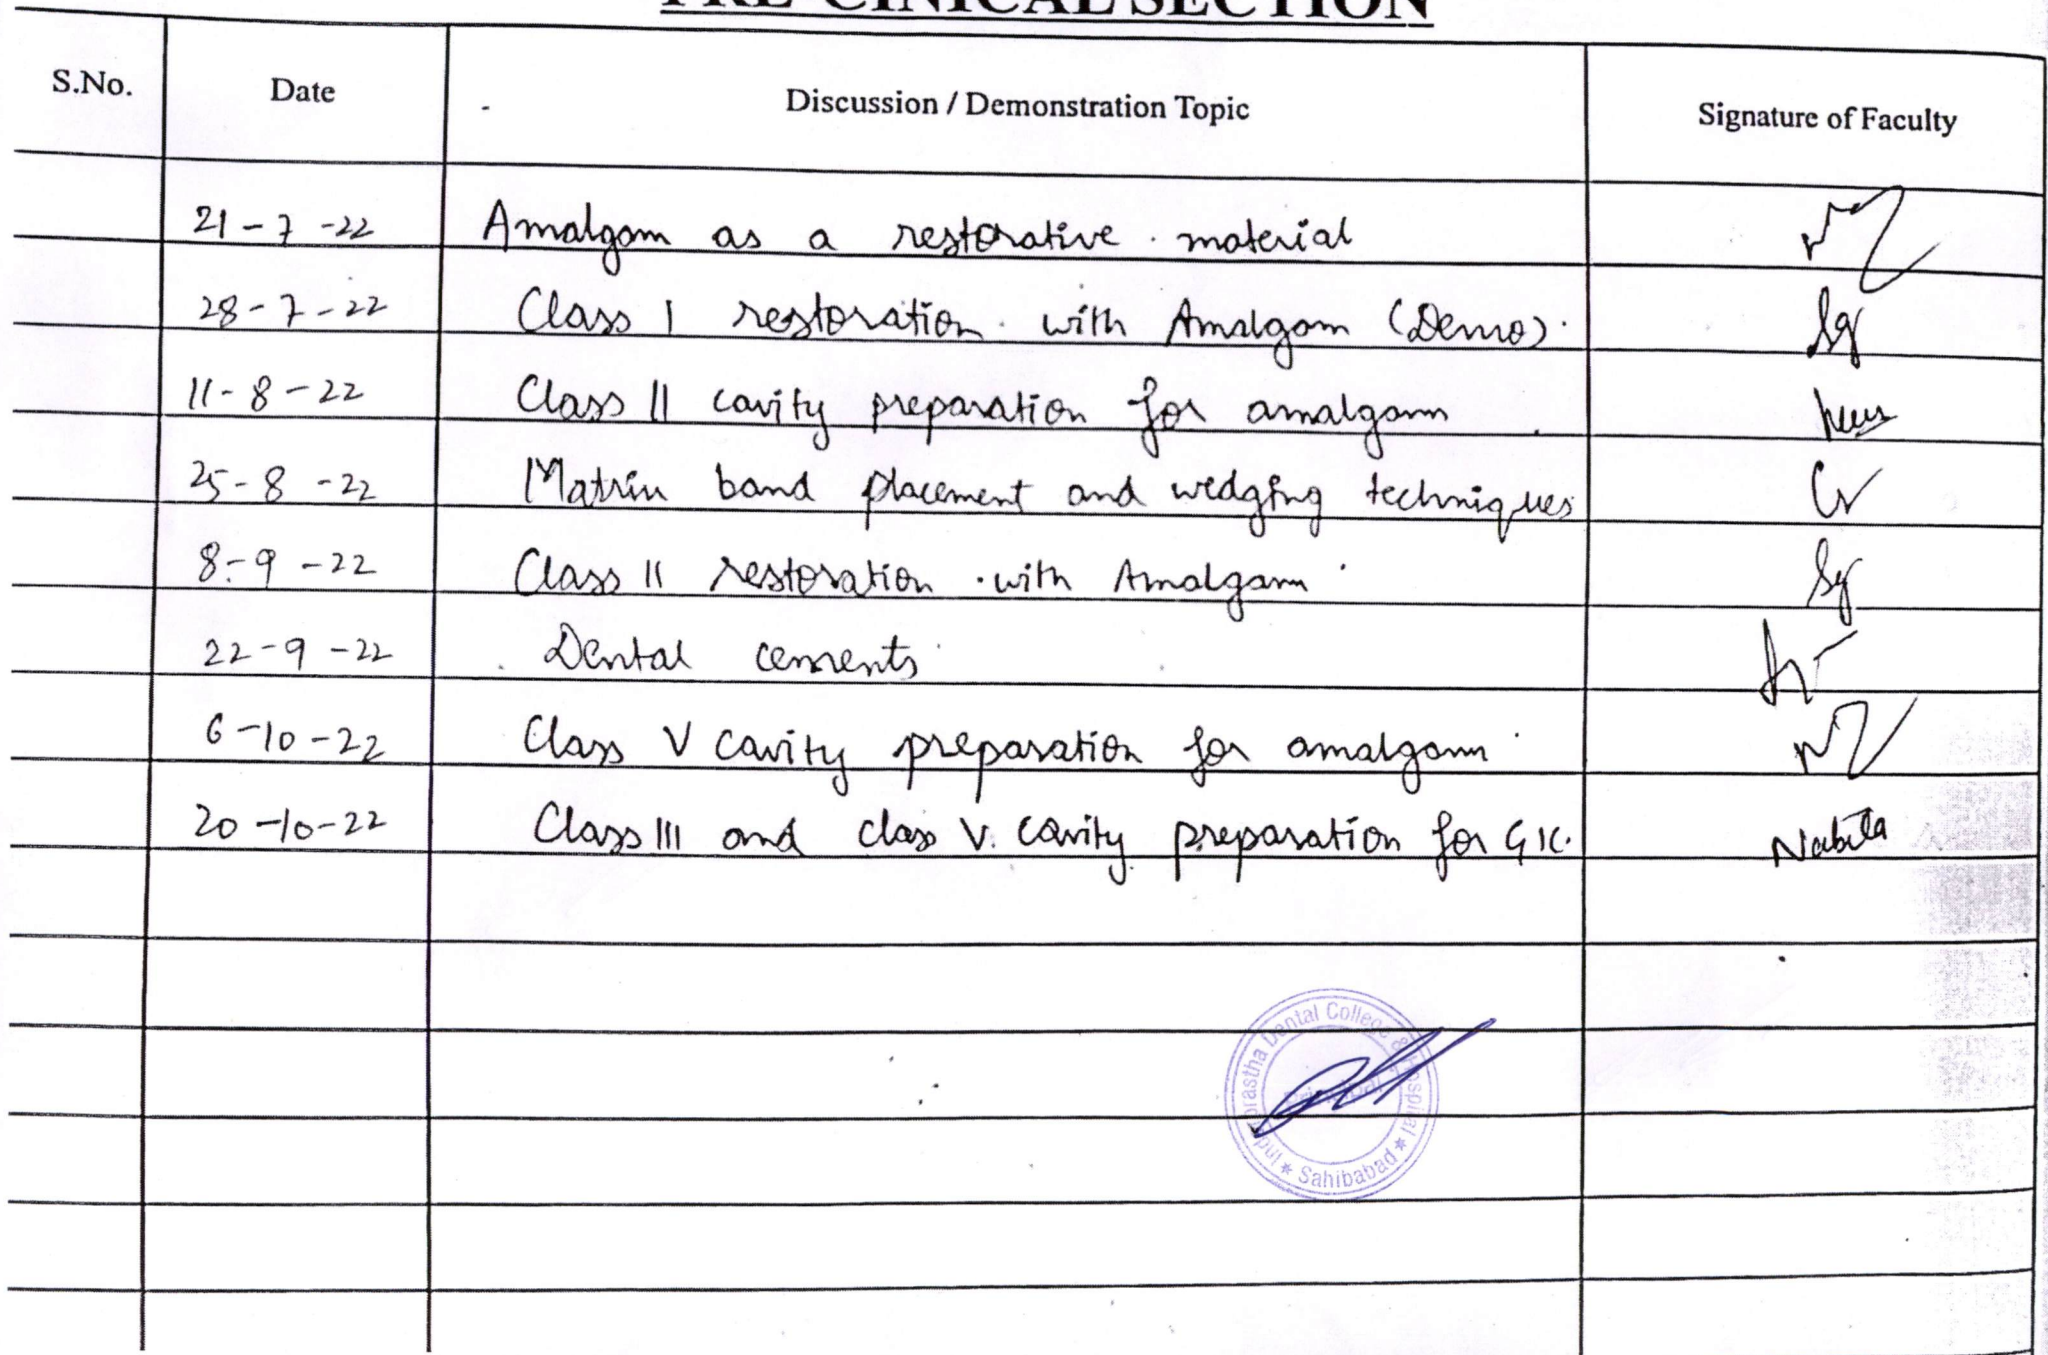 PRE-CINICAL SECTION
S.No. Date Discussion / Demonstration Topic Signature of Faculty
21-7-22 Amalgam as a restorative material
28-7-22 Class I restoration with Amalgam (Demo)
11-8-22 Class II cavity preparation for amalgam
25-8-22 Matrix band placement and wedging techniques
8-9-22 Class II restoration with Amalgam
22-9-22 Dental cements
6-10-22 Class V cavity preparation for amalgam
20-10-22 Class III and class V cavity preparation for GIC. Nabila
Indraprastha Dental College & Hospital
Principal
★ Sahibabad ★